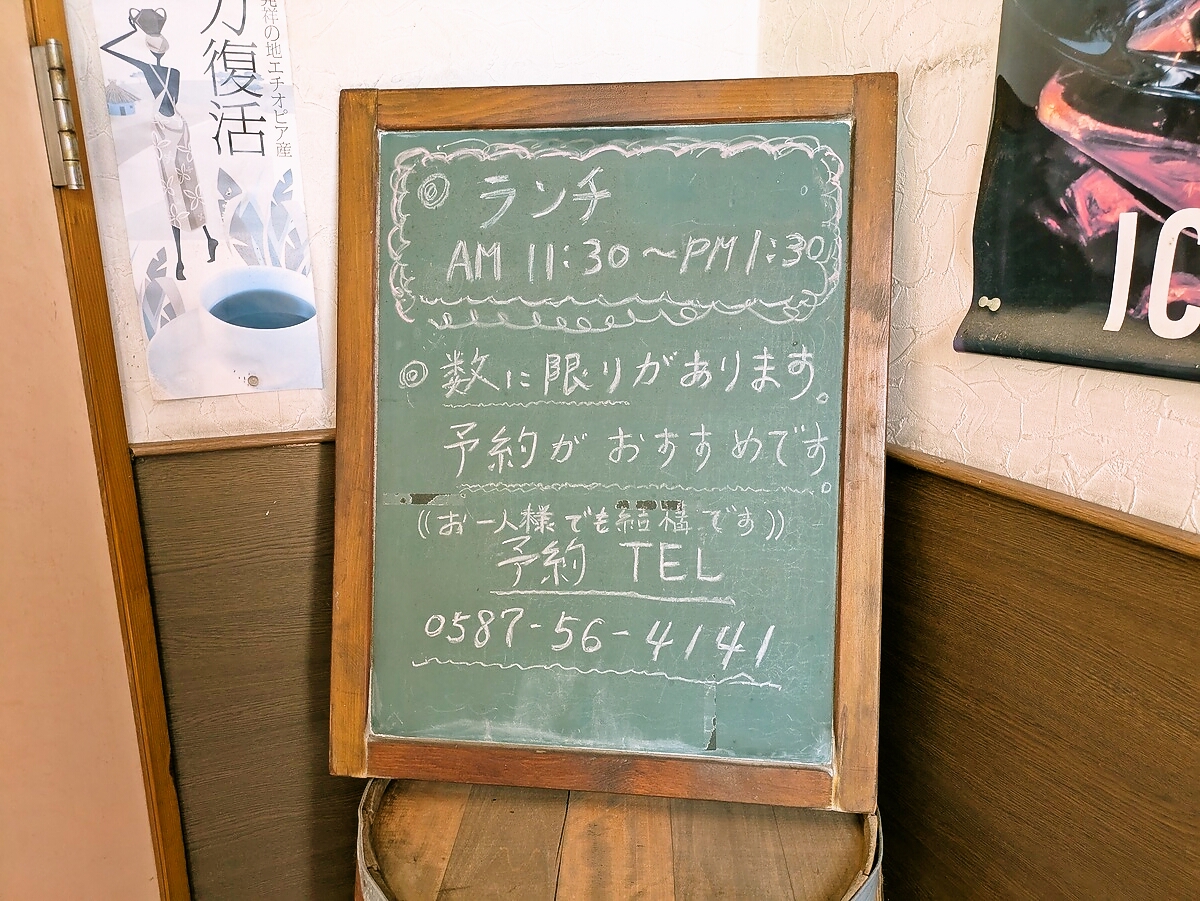 発祥の地エチオピア産
力復活
◎ ランチ
AM 11:30～PM 1:30
◎ 数に限りがあります。
予約がおすすめです。
((お一人様でも結構です))
予約 TEL
0587-56-4141
IC